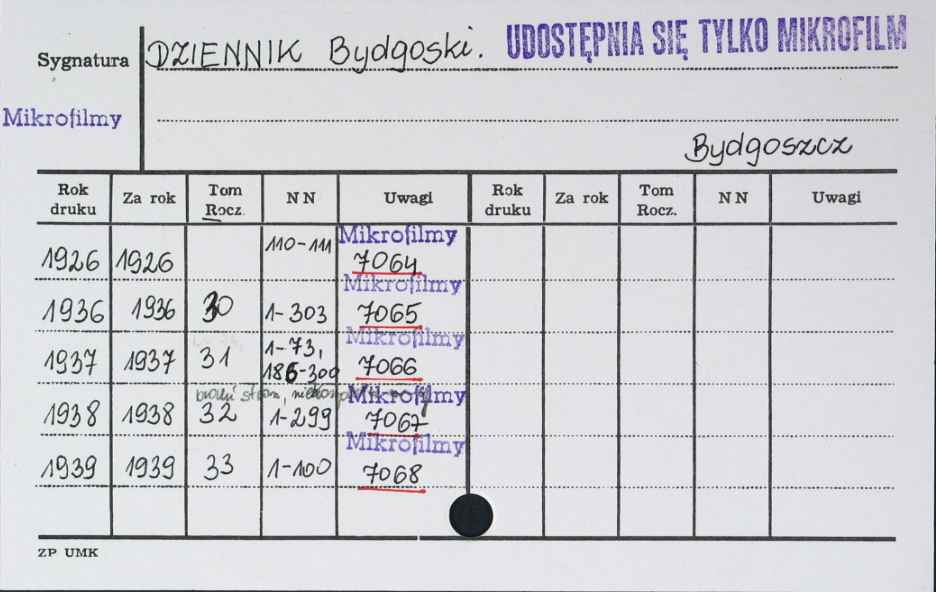 UDOSTĘPNIA SIĘ TYLKO MIKROFILM
Sygnatura DZIENNIK Bydgoski.
Mikrofilmy
Bydgoszcz
Rok druku Za rok Tom Rocz. NN Uwagi Rok druku Za rok Tom Rocz. NN Uwagi
1926 1926 110-111 Mikrofilmy 7064
1936 1936 30 1-303 Mikrofilmy 7065
1937 1937 31 1-73, 186-300 Mikrofilmy 7066
1938 1938 32 1-299 Mikrofilmy 7067
1939 1939 33 1-100 Mikrofilmy 7068
ZP UMK